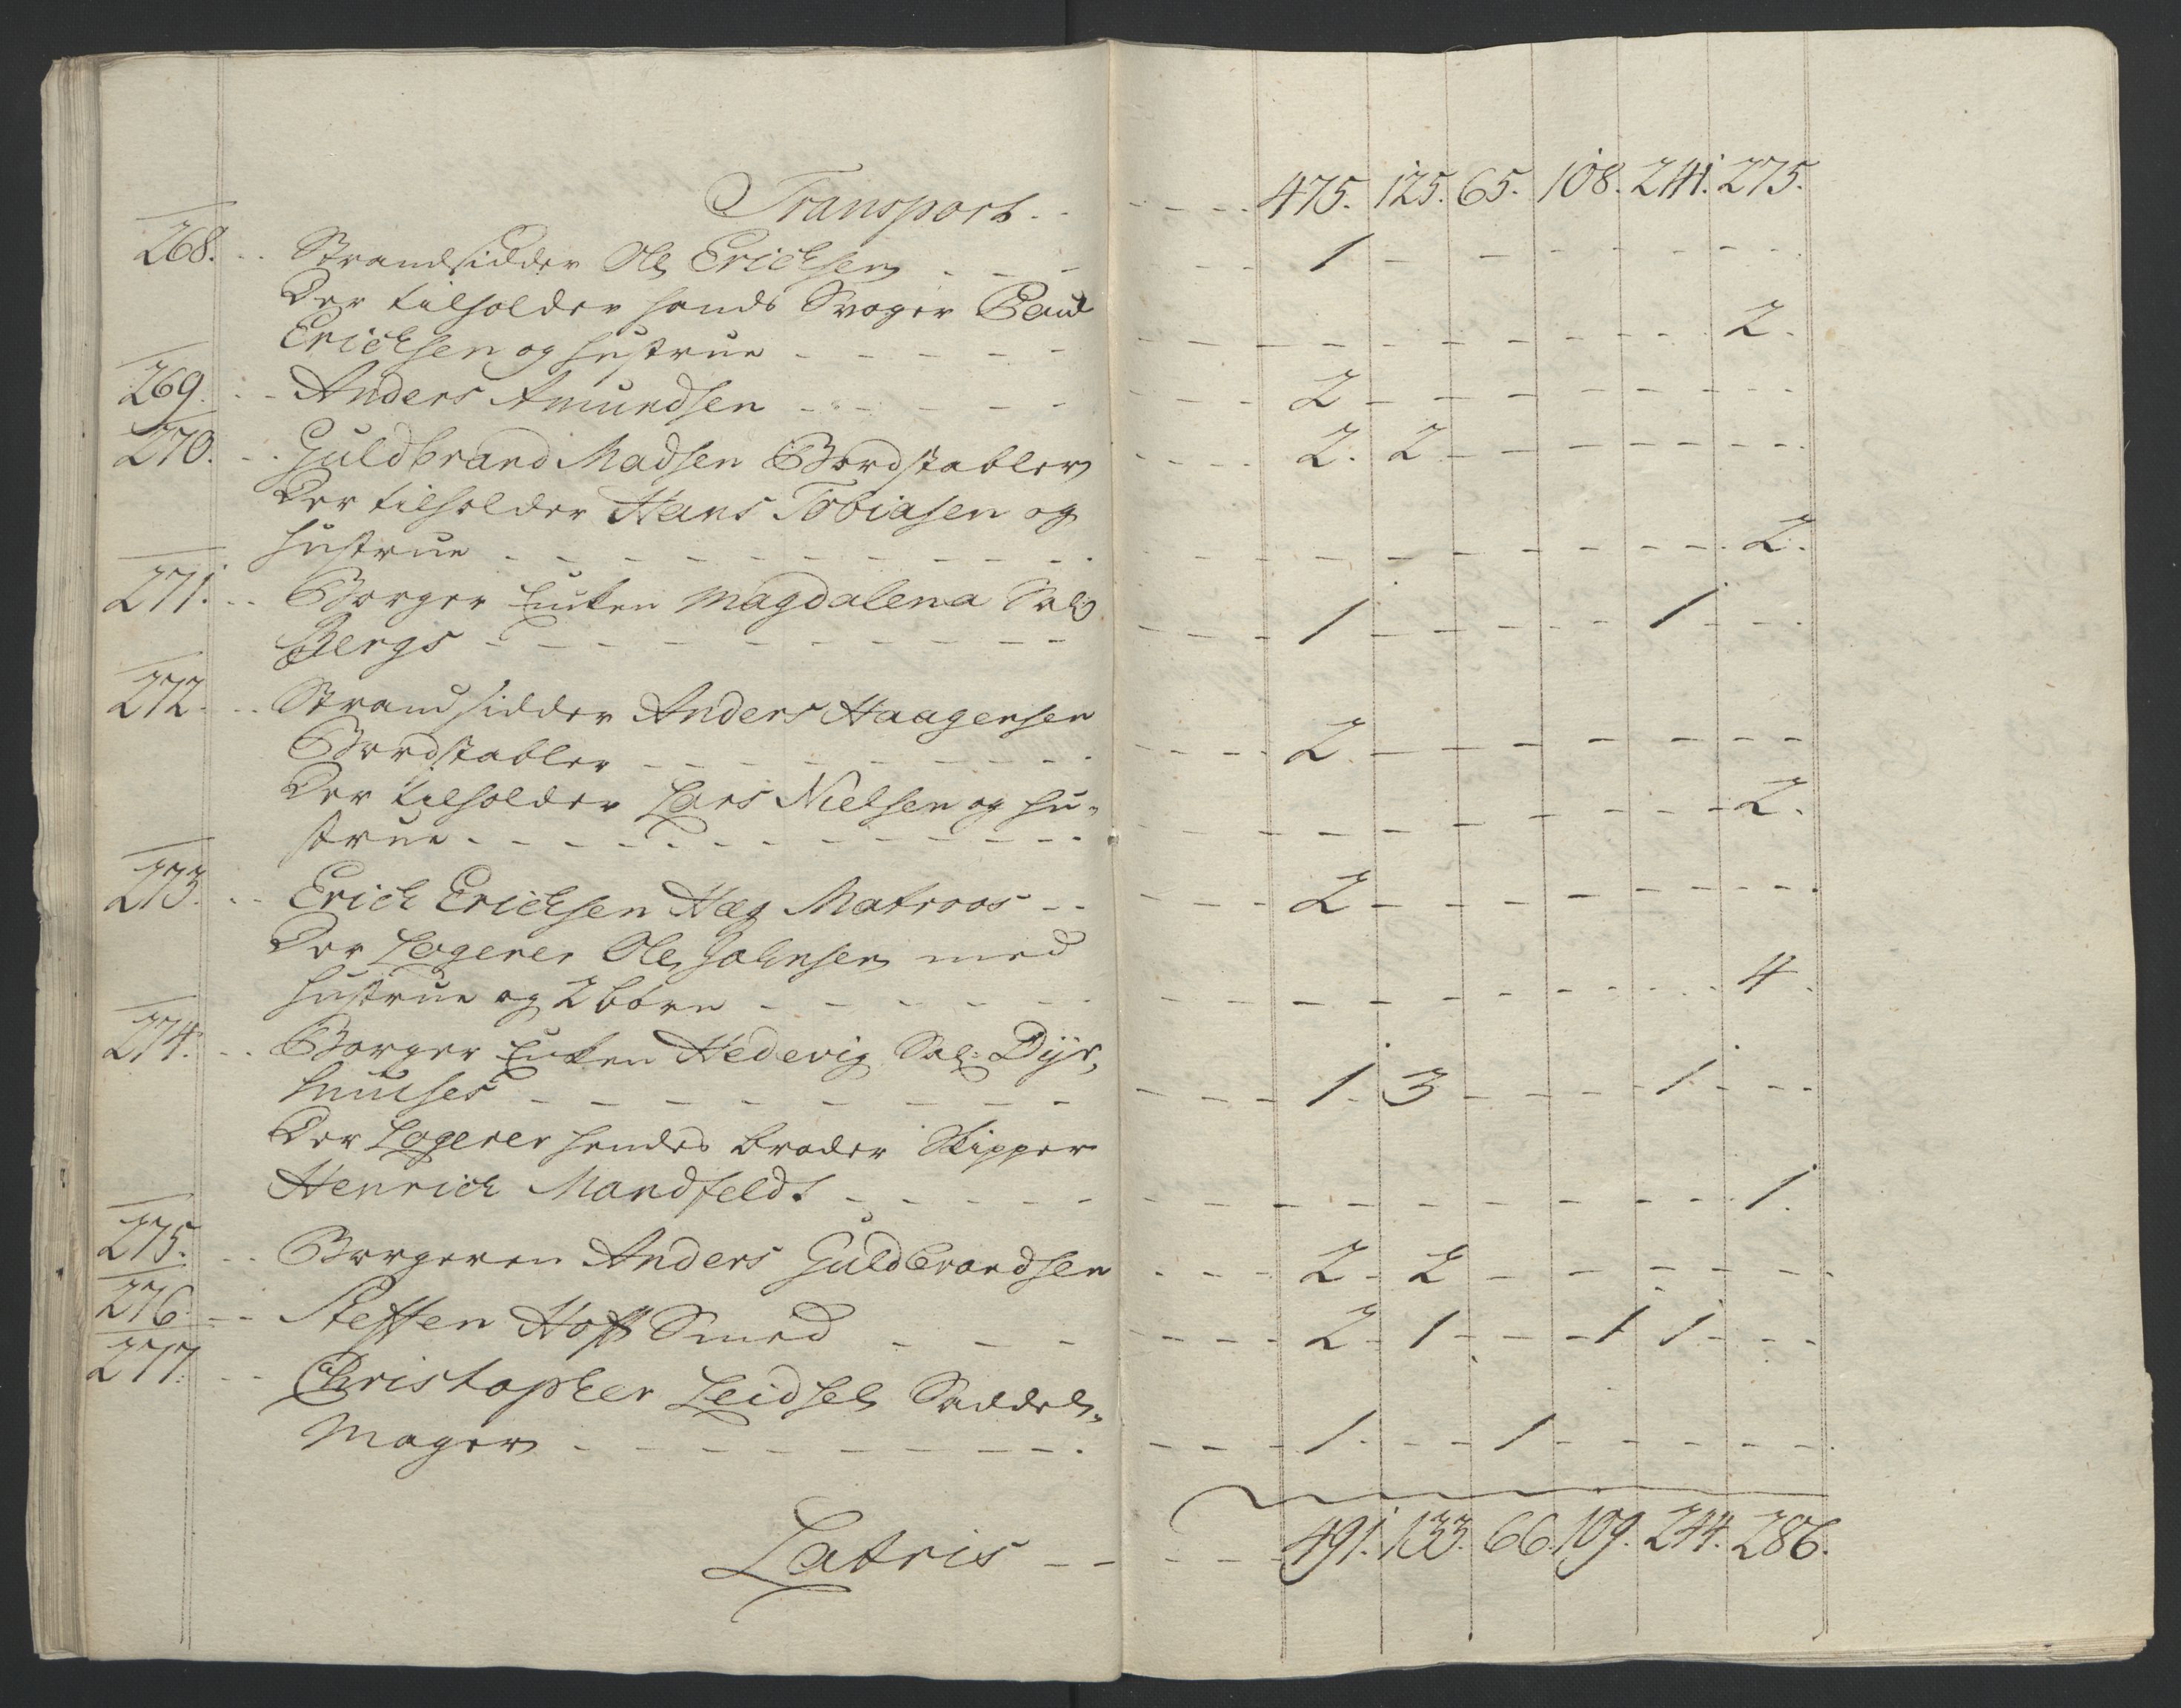 Transport - - - - - 475. 125. 65. 108. 241. 275.
268. - - Strandsidder Ole Erichsen - - - 1 - - - - -
Der tilholder hands Svoger Paul
Erichsen og hustrue - - - - - 2.
269. - - Anders Amundsen - - - - - 2 - - - - -
270. - - Guldbrand Madsen Bordstabler - - - 2. 2 - - - -
Der tilholder Hans Tobiasen og
hustrue - - - - - 2.
271. - - Borger Enken Magdalena Sal:
Bergs - - - - - 1 - - - 1 -
272. - - Strandsidder Anders Haagensen
Bordstabler - - - - - 2 - - - - -
Der tilholder Lars Nielsen og hu-
strue - - - - - 2.
273. - - Erich Erichsen Hæg Matroos - - 2 - - - - -
Der Logerer Ole Johnsen med
hustrue og 2 børn - - - - - 4.
274. - - Borger Enken Hedevig Sal: Dyr,
huuses - - - - - 1. 3 - - 1 -
Der Logerer hendes broder Skipper
Henrich Mandfeldt - - - - - 1.
275. - - Borgeren Anders Guldbrandsen - - - 2 - 2 - - - -
276. - - Steffen Hoff Smed - - - - 2 - 1 - - 1 1 - -
277. - - Christopher Leidsel Saddel-
mager - - - - - 1 - - 1 - - -
Latris - - - - 491. 133. 66. 109. 244. 286.